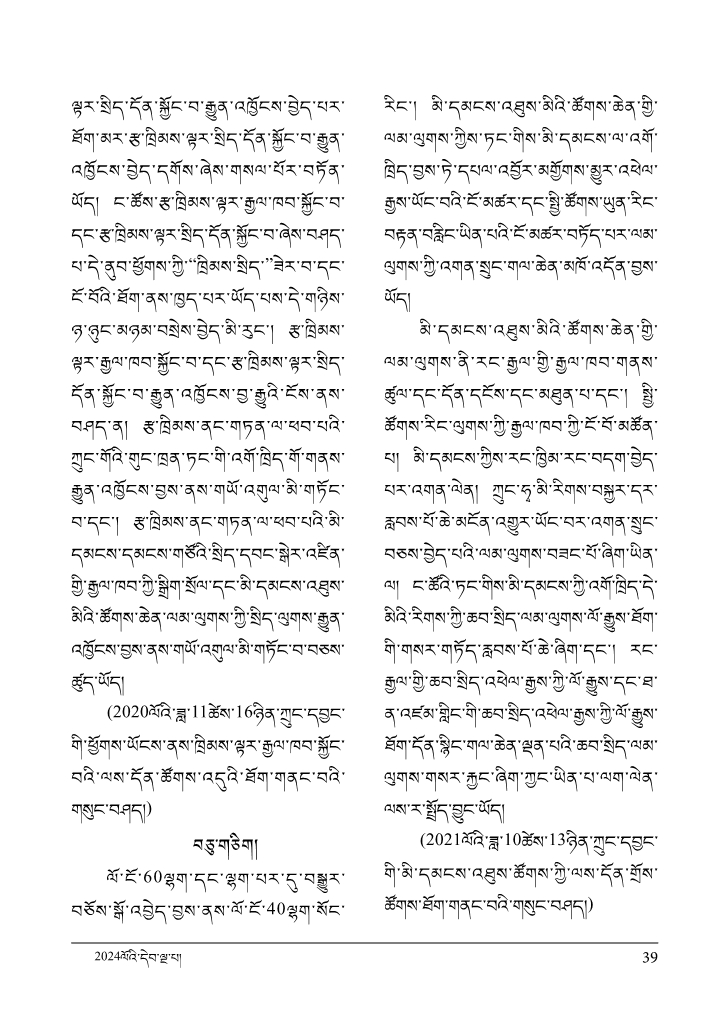 ལྟར་སྲིད་དོན་སྐྱོང་བ་རྒྱུན་འཁྱོངས་བྱེད་པར་
ཐོག་མར་རྩ་ཁྲིམས་ལྟར་སྲིད་དོན་སྐྱོང་བ་རྒྱུན་
འཁྱོངས་བྱེད་དགོས་ཞེས་གསལ་པོར་བཏོན་
ཡོད། ང་ཚོས་རྩ་ཁྲིམས་ལྟར་རྒྱལ་ཁབ་སྐྱོང་བ་
དང་རྩ་ཁྲིམས་ལྟར་སྲིད་དོན་སྐྱོང་བ་ཞེས་བཤད་
པ་དེ་ནུབ་ཕྱོགས་ཀྱི་“ཁྲིམས་སྲིད་”ཟེར་བ་དང་
ངོ་བོའི་ཐོག་ནས་ཁྱད་པར་ཡོད་པས་དེ་གཉིས་
ཉ་ཉུང་མཉམ་བསྲེས་བྱེད་མི་རུང་། རྩ་ཁྲིམས་
ལྟར་རྒྱལ་ཁབ་སྐྱོང་བ་དང་རྩ་ཁྲིམས་ལྟར་སྲིད་
དོན་སྐྱོང་བ་རྒྱུན་འཁྱོངས་བྱ་རྒྱུའི་ངོས་ནས་
བཤད་ན། རྩ་ཁྲིམས་ནང་གཏན་ལ་ཕབ་པའི་
ཀྲུང་གོའི་གུང་ཁྲན་ཏང་གི་འགོ་ཁྲིད་གོ་གནས་
རྒྱུན་འཁྱོངས་བྱས་ནས་གཡོ་འགུལ་མི་གཏོང་
བ་དང་། རྩ་ཁྲིམས་ནང་གཏན་ལ་ཕབ་པའི་མི་
དམངས་དམངས་གཙོའི་སྲིད་དབང་སྒེར་འཛིན་
གྱི་རྒྱལ་ཁབ་ཀྱི་སྒྲིག་སྲོལ་དང་མི་དམངས་འཐུས་
མིའི་ཚོགས་ཆེན་ལམ་ལུགས་ཀྱི་སྲིད་ལུགས་རྒྱུན་
འཁྱོངས་བྱས་ནས་གཡོ་འགུལ་མི་གཏོང་བ་བཅས་
ཚུད་ཡོད།
(2020ལོའི་ཟླ་11ཚེས་16ཉིན་ཀྲུང་དབྱང་
གི་ཕྱོགས་ཡོངས་ནས་ཁྲིམས་ལྟར་རྒྱལ་ཁབ་སྐྱོང་
བའི་ལས་དོན་ཚོགས་འདུའི་ཐོག་གནང་བའི་
གསུང་བཤད།)
བཅུ་གཅིག
ལོ་ངོ་60ལྷག་དང་ལྷག་པར་དུ་བསྒྱུར་
བཅོས་སྒོ་འབྱེད་བྱས་ནས་ལོ་ངོ་40ལྷག་སོང་
རིང་། མི་དམངས་འཐུས་མིའི་ཚོགས་ཆེན་གྱི་
ལམ་ལུགས་ཀྱིས་ཏང་གིས་མི་དམངས་ལ་འགོ་
ཁྲིད་བྱས་ཏེ་དཔལ་འབྱོར་མགྱོགས་མྱུར་འཕེལ་
རྒྱས་ཡོང་བའི་ངོ་མཚར་དང་སྤྱི་ཚོགས་ཡུན་རིང་
བརྟན་བརླིང་ཡིན་པའི་ངོ་མཚར་བཏོད་པར་ལམ་
ལུགས་ཀྱི་འགན་སྲུང་གལ་ཆེན་མཁོ་འདོན་བྱས་
ཡོད།
མི་དམངས་འཐུས་མིའི་ཚོགས་ཆེན་གྱི་
ལམ་ལུགས་ནི་རང་རྒྱལ་གྱི་རྒྱལ་ཁབ་གནས་
ཚུལ་དང་དོན་དངོས་དང་མཐུན་པ་དང་། སྤྱི་
ཚོགས་རིང་ལུགས་ཀྱི་རྒྱལ་ཁབ་ཀྱི་ངོ་བོ་མཚོན་
པ། མི་དམངས་ཀྱིས་རང་ཁྱིམ་རང་བདག་བྱེད་
པར་འགན་ལེན། ཀྲུང་ཧྭ་མི་རིགས་བསྐྱར་དར་
རླབས་པོ་ཆེ་མངོན་འགྱུར་ཡོང་བར་འགན་སྲུང་
བཅས་བྱེད་པའི་ལམ་ལུགས་བཟང་པོ་ཞིག་ཡིན་
ལ། ང་ཚོའི་ཏང་གིས་མི་དམངས་ཀྱི་འགོ་ཁྲིད་དེ་
མིའི་རིགས་ཀྱི་ཆབ་སྲིད་ལམ་ལུགས་ལོ་རྒྱུས་ཐོག་
གི་གསར་གཏོད་རླབས་པོ་ཆེ་ཞིག་དང་། རང་
རྒྱལ་གྱི་ཆབ་སྲིད་འཕེལ་རྒྱས་ཀྱི་ལོ་རྒྱུས་དང་ཐ་
ན་འཛམ་གླིང་གི་ཆབ་སྲིད་འཕེལ་རྒྱས་ཀྱི་ལོ་རྒྱུས་
ཐོག་དོན་སྙིང་གལ་ཆེན་ལྡན་པའི་ཆབ་སྲིད་ལམ་
ལུགས་གསར་རྐྱང་ཞིག་ཀྱང་ཡིན་པ་ལག་ལེན་
ལས་ར་སྤྲོད་བྱུང་ཡོད།
(2021ལོའི་ཟླ་10ཚེས་13ཉིན་ཀྲུང་དབྱང་
གི་མི་དམངས་འཐུས་ཚོགས་ཀྱི་ལས་དོན་གྲོས་
ཚོགས་ཐོག་གནང་བའི་གསུང་བཤད།)
2024ལོའི་དེབ་ལྔ་པ།
39